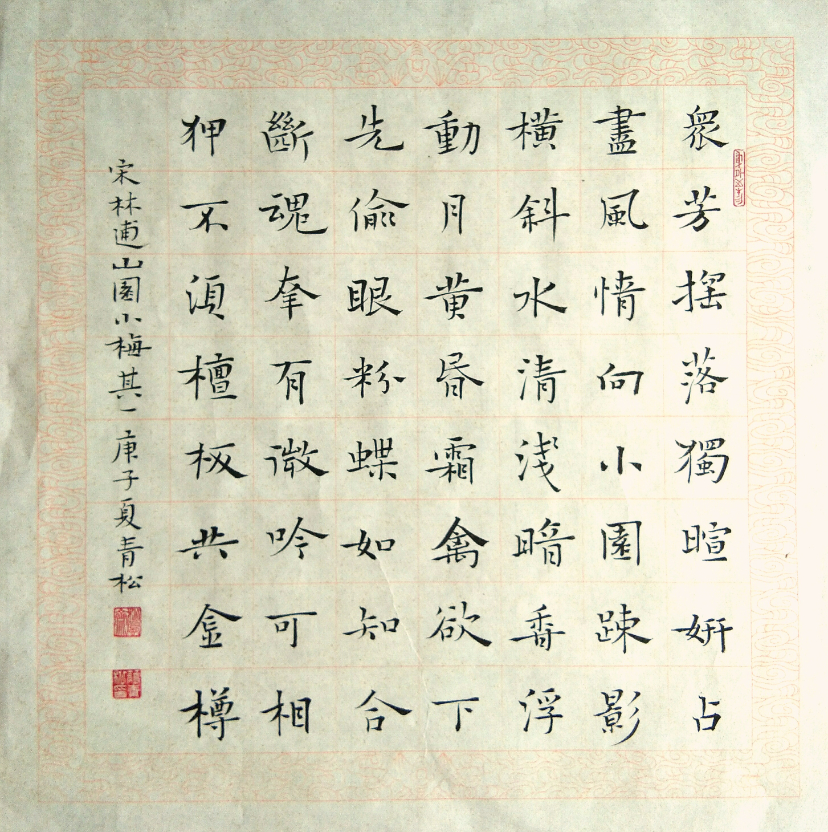 眾芳搖落獨暄妍占
盡風情向小園疎影
橫斜水清淺暗香浮
動月黃昏霜禽欲下
先偷眼粉蝶如知合
斷魂幸有微吟可相
狎不須檀板共金樽
宋林逋山園小梅其一庚子夏青松